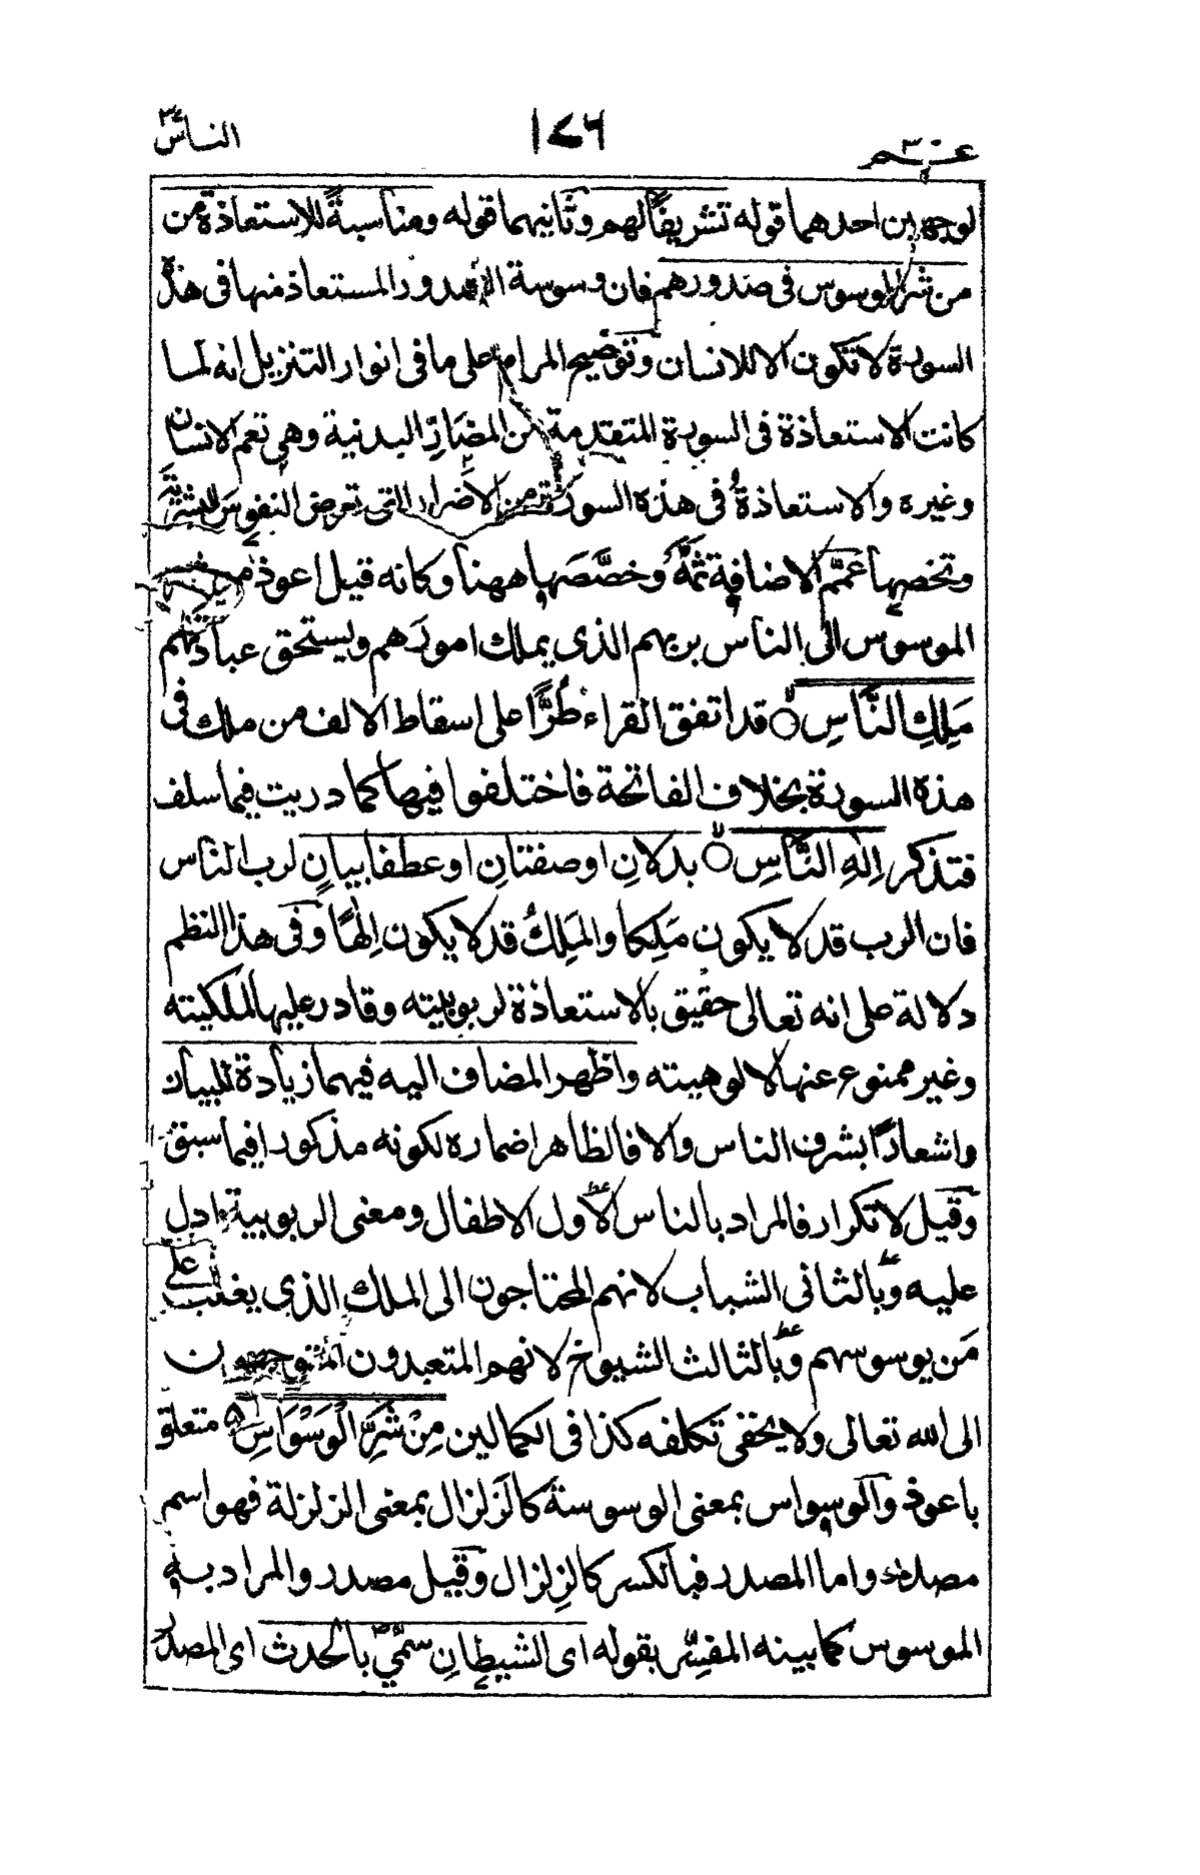 عـم ٣٠ ١٧٦ الناس
لوجهين احدهما قوله تشريفًا لهم وثانيهما قوله ومناسبةً للاستعاذة من
من شر الموسوس فى صدورهم فان وسوسة الصدور المستعاذ منها فى هذه
السورة لا تكون الا للانسان وتوضيح المرام على ما فى انوار التنزيل انه لما
كانت الاستعاذة فى السورة المتقدمة من المضَارِّ البدنية وهى تعم الانسان
وغيره والاستعاذةُ فى هذه السورة من الاضرار التى تعرض النفوس البشريَّة
وتخصها عَمَّم الاضافة ثمَّهُ وخصَّصَها ههنا وكانه قيل اعوذ من
الموسوس الى الناس بربهم الذى يملك امورَهم ويستحق عبادتهم
مَلِكِ النَّاسِ ○ قد اتفق القراء طُرًّا على اسقاط الالف من ملك فى
هذه السورة بخلاف الفاتحة فاختلفوا فيها كما دريت فيما سلف
فتذكر اِلٰهِ النَّاسِ ○ بدلانِ او صفتانِ او عطفا بيانٍ لرب الناس
فان الرب قد لا يكون مَلِكا والمَلِكُ قد لا يكون اِلٰهًا وفى هذا النظم
دلالة على انه تعالى حقيق بالاستعاذة لربوبيته وقادر عليها لملكيته
وغير ممنوع عنها لالوهيته واظهر المضاف اليه فيهما زيادة للبيان
واشعارًا بشرف الناس والا فالظاهر اضماره لكونه مذكورا فيما سبق
وقيل لا تكرار فالمراد بالناس الاول الاطفال ومعنى الربوبية ادل
عليه وبالثانى الشباب لانهم المحتاجون الى الملك الذى يغلب على
مَن يوسوسهم وبالثالث الشيوخ لانهم المتعبدون المتوجهون
الى الله تعالى ولا يخفى تكلفه كذا فى الكمالين مِنْ شَرِّ الْوَسْوَاسِ متعلق
باعوذ والوسواس بمعنى الوسوسة كالزَلزال بمعنى الزلزلة فهو اسم
مصدر واما المصدر فبالكسر كالزِلزال وقيل مصدر والمراد به
الموسوس كما بينه المفسِّر بقوله اى الشيطانِ سمّي بالحدث اى المصدر